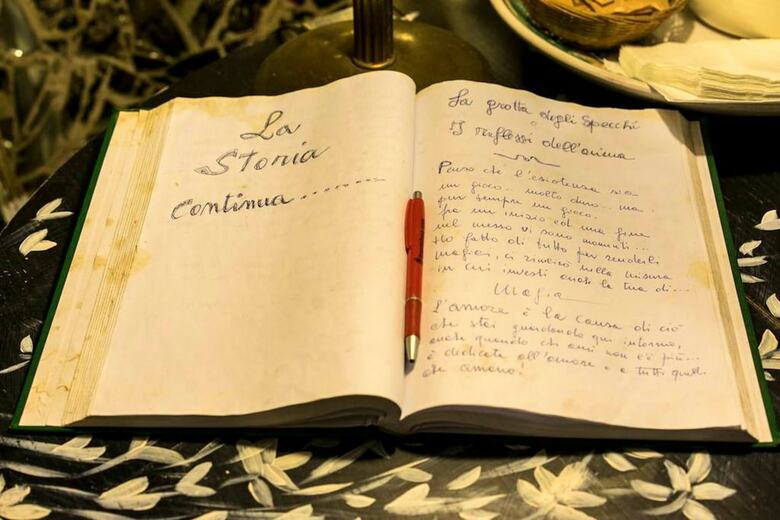 La
Storia
Continua........
La grotta degli Specchi
o
I riflessi dell'anima
Penso che l'esistenza sia
un gioco.. molto duro... ma..
pur sempre un gioco.
ha un inizio ed una fine
nel mezzo vi sono momenti...
Ho fatto di tutto per renderli
magici, ci riuscirò nella misura
in cui investi anche la tua di...
Magia
L'amore è la causa di ciò
che stai guardando qui intorno,
anche quando chi ami non c'è più...
è dedicata all'amore e a tutti quelli
che amano!